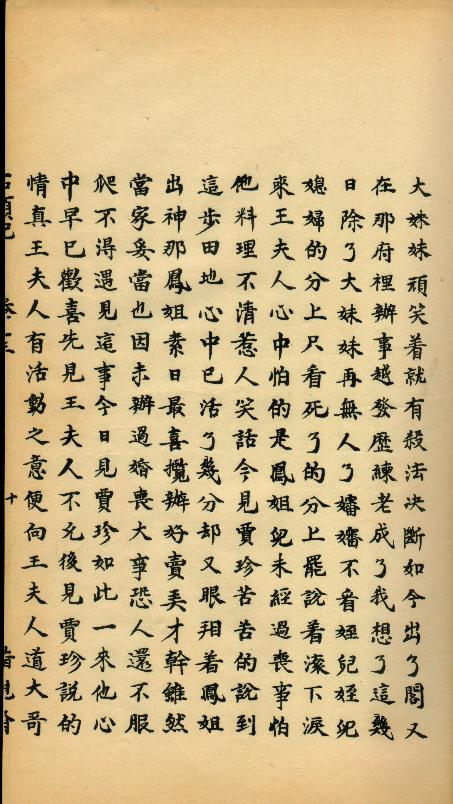 大妹妹頑笑着就有殺法决斷如今出了閣又
在那府裡辦事越發歷練老成了我想了這幾
日除了大妹妹再無人了嬸嬸不看姪兒姪兒
媳婦的分上只看死了的分上罷說着滾下淚
來王夫人心中怕的是鳳姐兒未經過喪事怕
他料理不清惹人笑話今見賈珍苦苦的說到
這步田地心中已活了幾分却又眼看着鳳姐
出神那鳳姐素日最喜攬辦好賣弄才幹雖然
當家妥當也因未辦過婚喪大事恐人還不服
爬不得遇見這事今日見賈珍如此一來他心
中早已歡喜先見王夫人不允後見賈珍說的
情真王夫人有活動之意便向王夫人道大哥
十